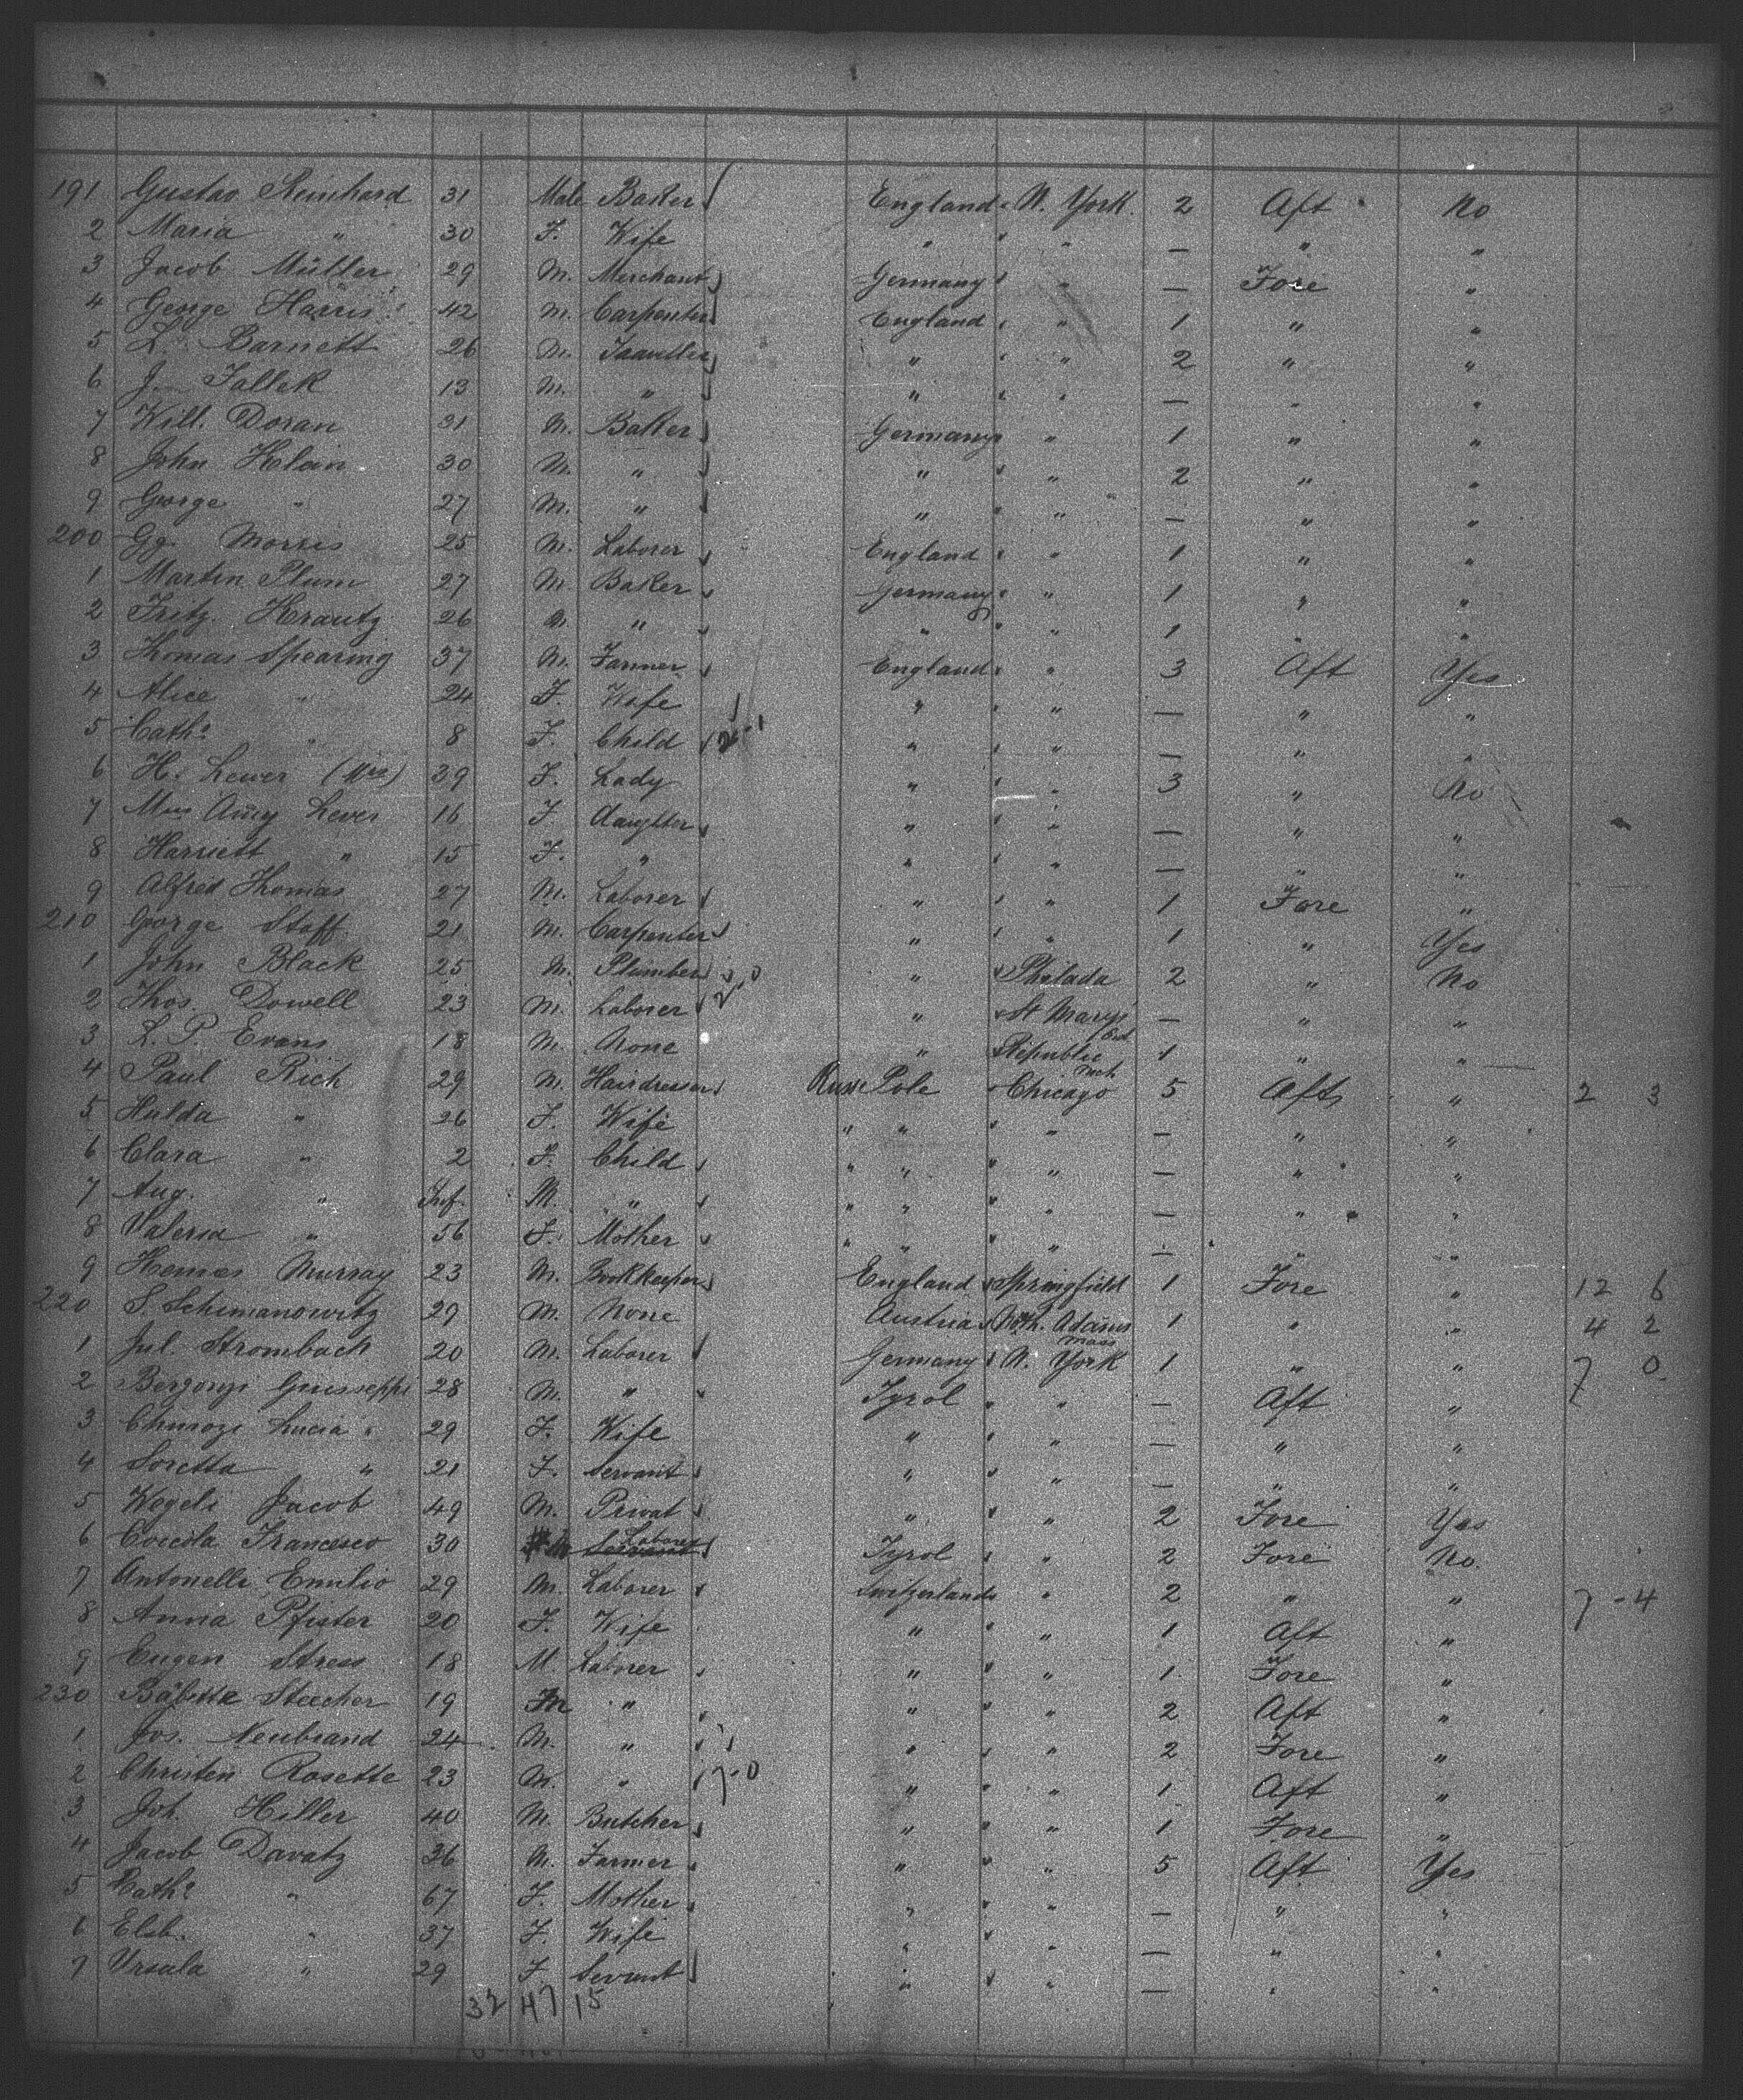 191 Gustav Reinhard 31 Male Baker England N. York 2 Aft No
2 Maria " 30 F. Wife " " — " "
3 Jacob Müller 29 M. Merchant Germany " — Fore "
4 George Harris 42 M. Carpenter England " 1 " "
5 L. Barnett 26 M. Traveller " " 2 " "
6 J. Fallek 13 M. " " " — " "
7 Will. Doran 21 M. Baker Germany " 1 " "
8 John Klein 30 M. " " " 2 " "
9 George " 27 M. " " " — " "
200 Gg. Morris 25 M. Laborer England " 1 " "
1 Martin Plum 27 M. Baker Germany " 1 " "
2 Fritz Krautz 26 M. " " " 1 " "
3 Thomas Spearing 37 M. Farmer England " 3 Aft Yes
4 Alice " 24 F. Wife " " — " "
5 Cath? " 8 F. Child 2-1 " " — " "
6 H. Lewer (Mrs) 39 F. Lady " " 3 " No
7 Miss Amy Lever 16 F daughter " " — " "
8 Harriett " 15 F. " " " — " "
9 Alfred Thomas 27 M. Laborer " " 1 Fore "
210 George Staff 21 M. Carpenter " " 1 " Yes
1 John Black 25 M. Plumber " Philada 2 " No
2 Thos. Dowell 23 M. Laborer 2-0 " St Marys — " "
3 L. P. Evans 18 M. None " Republic 1 " "
4 Paul Rich 29 M. Hairdresser Russ Pole Chicago 5 Aft " 2 3
5 Hulda " 26 F. Wife " " " — " "
6 Clara " 2 F. Child " " " — " "
7 Aug. " Inf. M. " " " " — " "
8 Valeria " 56 F. Mother " " " — " "
9 Murray 23 M. Bookkeeper England Springfield 1 Fore " 12 6
220 S. Schimanowitz 29 M. None Austria Nth. Adams Mass 1 " " 4 2
1 Jul. Strombach 20 M. Laborer Germany N. York 1 " " 7 0
2 Bergonzi Giusseppi 28 M. " Tyrol " — Aft "
3 Lucia " 29 F. Wife " " — " "
4 Loretta " 21 F. Servant " " — " "
5 Wegeli Jacob 49 M. Privat " " 2 Fore Yes
6 Francesco 30 M Laborer Tyrol " 2 Fore No.
7 Antonelli Emilio 29 M. Laborer Switzerland " 2 " " 7-4
8 Anna Pfister 20 F. Wife " " 1 Aft "
9 Eugen Stress 18 M. Laborer " " 1 Fore "
230 Babette Stecher 19 " " " 2 Aft "
1 Jos. Neubrand 24 M. " " " 2 Fore "
2 Christen Rosette 23 M. " 7-0 " " 1 Aft "
3 Joh. Hiller 40 M. Butcher " " 1 Fore "
4 Jacob Davatz 36 M. Farmer " " 5 Aft Yes
5 Cath? " 67 F. Mother " " — " "
6 Elsb. " 37 F. Wife " " — " "
7 Ursula " 29 F. Servant " " — " "
32 47 15